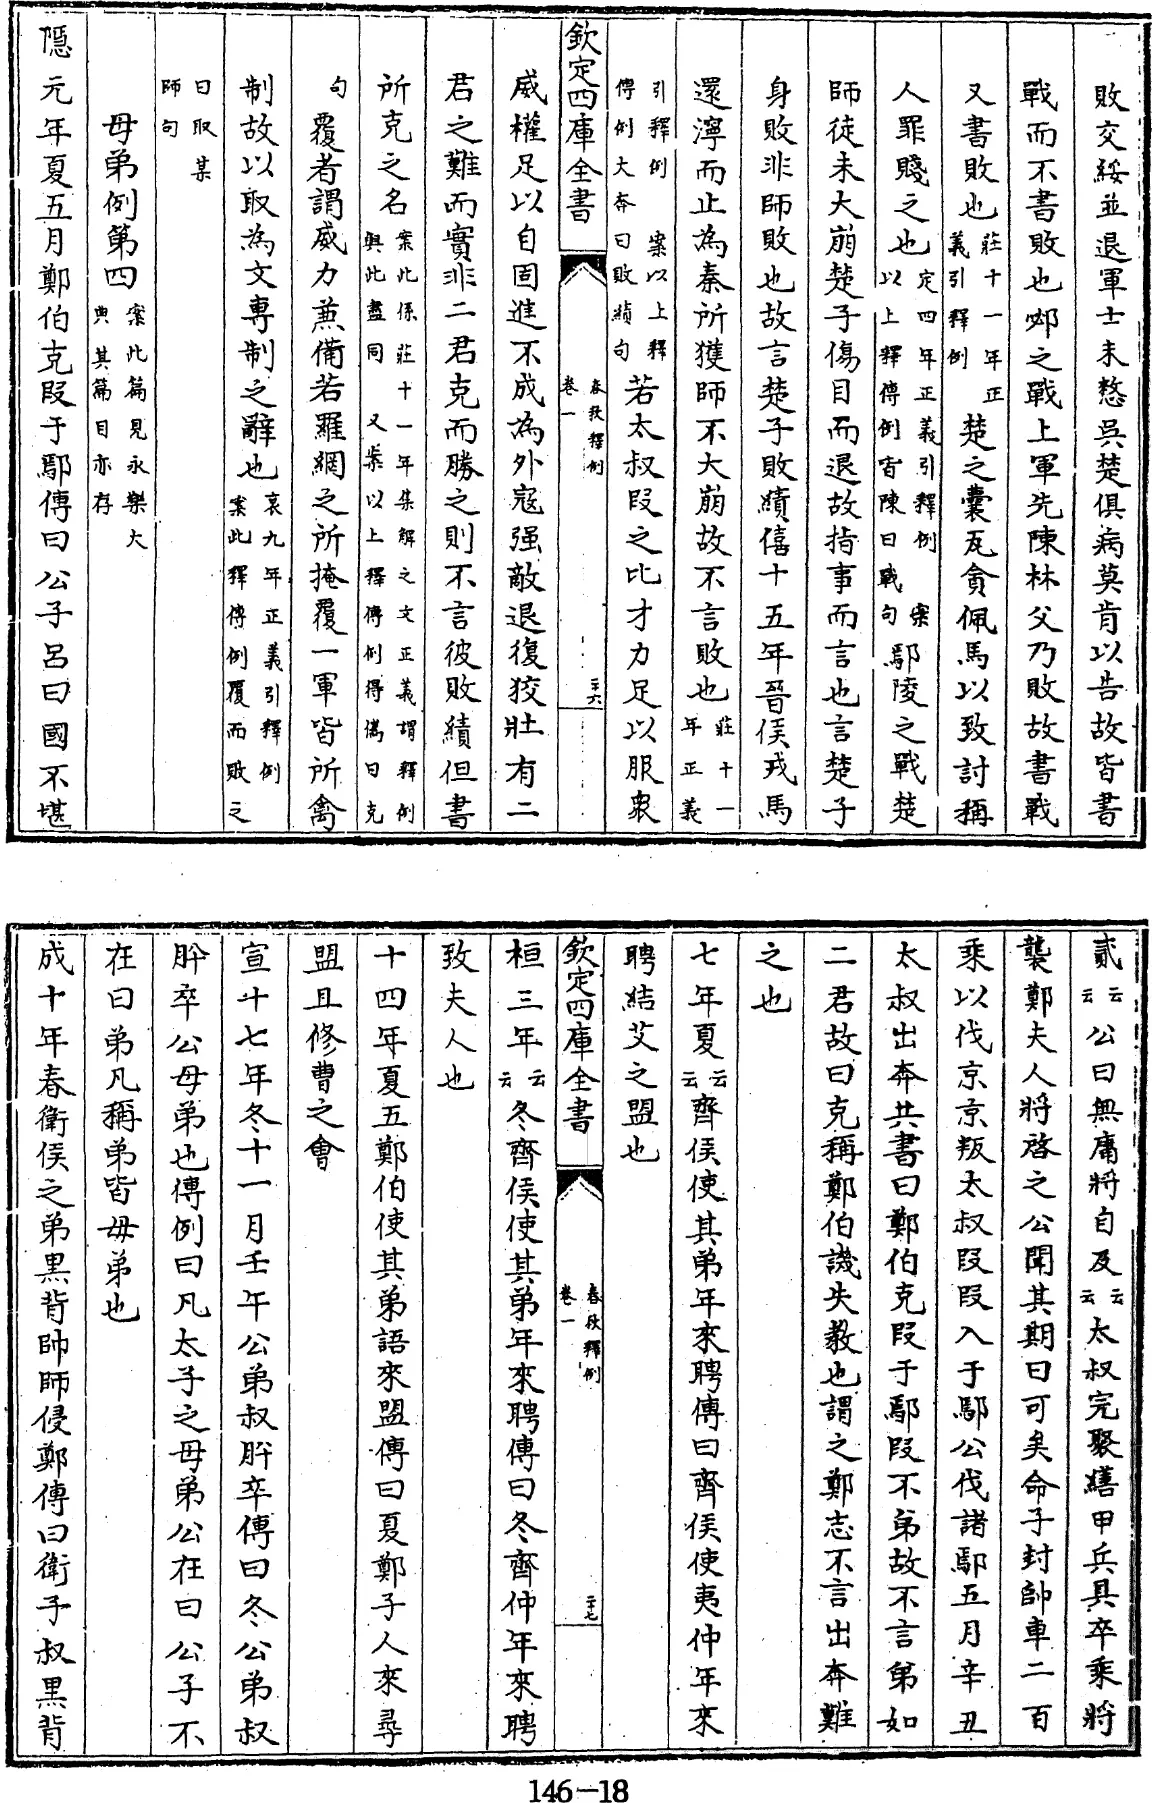 敗交綏並退軍士未憖吳楚俱病莫肯以告故皆書
戰而不書敗也邲之戰上軍先陳林父乃敗故書戰
又書敗也莊十一年正義引釋例楚之囊瓦貪佩馬以致討稱
人罪賤之也定四年正義引釋例 案以上釋傳例皆陳曰戰句鄢陵之戰楚
師徒未大崩楚子傷目而退故指事而言也言楚子
身敗非師敗也故言楚子敗績僖十五年晉侯戎馬
還濘而止為秦所獲師不大崩故不言敗也莊十一年正義
引釋例 案以上釋傳例大奔曰敗績句若太叔段之比才力足以服衆
欽定四庫全書 春秋釋例 卷一 二十六
威權足以自固進不成為外寇强敵退復狡壯有二
君之難而實非二君克而勝之則不言彼敗績但書
所克之名案此係莊十一年集解之文正義謂釋例與此盡同 又案以上釋傳例得儁曰克
句覆者謂威力兼備若羅網之所掩覆一軍皆所禽
制故以取為文專制之辭也哀九年正義引釋例案此釋傳例覆而敗之
曰取某師句
母弟例第四案此篇見永樂大典其篇目亦存
隱元年夏五月鄭伯克段于鄢傳曰公子呂曰國不堪
貳云云公曰無庸將自及云云太叔完聚繕甲兵具卒乘將
襲鄭夫人將啓之公聞其期曰可矣命子封帥車二百
乘以伐京京叛太叔段段入于鄢公伐諸鄢五月辛丑
太叔出奔共書曰鄭伯克段于鄢段不弟故不言弟如
二君故曰克稱鄭伯譏失教也謂之鄭志不言出奔難
之也
七年夏云云齊侯使其弟年來聘傳曰齊侯使夷仲年來
聘結艾之盟也
欽定四庫全書 春秋釋例 卷一 二十七
桓三年云云冬齊侯使其弟年來聘傳曰冬齊仲年來聘
致夫人也
十四年夏五鄭伯使其弟語來盟傳曰夏鄭子人來尋
盟且修曹之會
宣十七年冬十一月壬午公弟叔肸卒傳曰冬公弟叔
肸卒公母弟也傳例曰凡太子之母弟公在曰公子不
在曰弟凡稱弟皆母弟也
成十年春衛侯之弟黒背帥師侵鄭傳曰衛子叔黒背
146-18